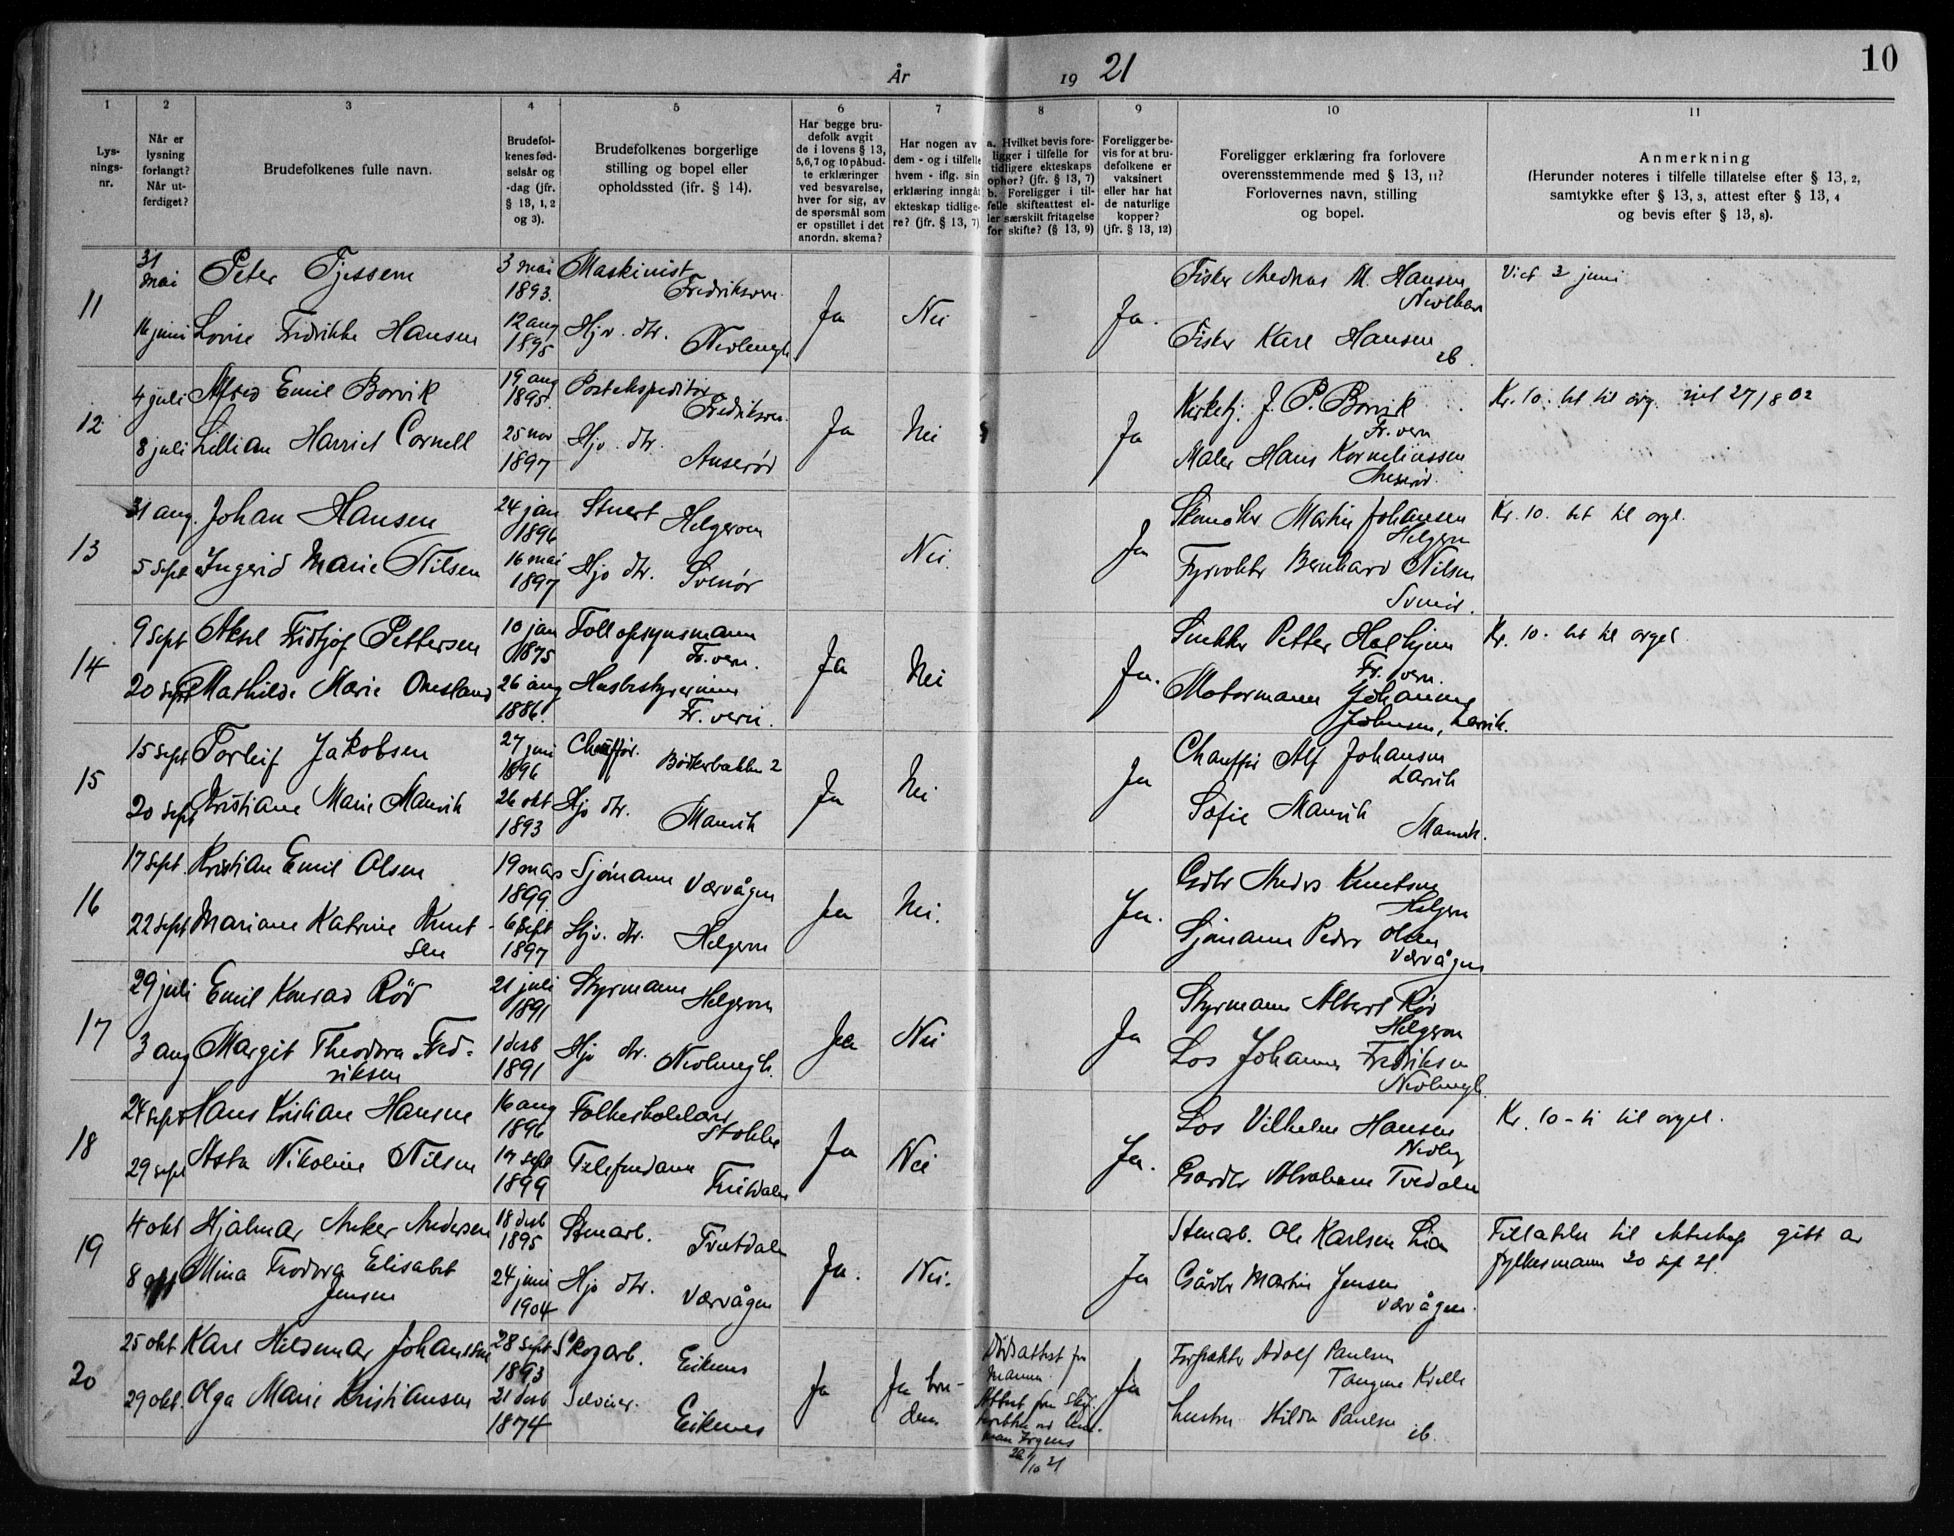 År 19 21
10
1 2 3 4 5 6 7 8 9 10 11
Lysnings-nr.
Når er lysning forlangt? Når utferdiget?
Brudefolkenes fulle navn.
Brudefolkenes fødselsår og -dag (jfr. § 13, 1, 2 og 3).
Brudefolkenes borgerlige stilling og bopel eller opholdssted (ifr. § 14).
Har begge brudefolk avgit de i lovens § 13, 5, 6, 7 og 10 påbudte erklæringer ved besvarelse, hver for sig, av de spørsmål som er opstillet i det anordn. skema?
Har nogen av dem - og i tilfelle hvem - iflg. sin erklæring inngåt ekteskap tidligere? (jfr. § 13, 7)
a. Hvilket bevis foreligger i tilfelle for tidligere ekteskaps ophør? (jfr. § 13, 7) b. Foreligger i tilfelle skifteattest eller særskilt fritagelse for skifte? (§ 13, 9)
Foreligger bevis for at brudefolkene er vaksinert eller har hat de naturlige kopper? (jfr. § 13, 12)
Foreligger erklæring fra forlovere overensstemmende med § 13, 11? Forlovernes navn, stilling og bopel.
Anmerkning (Herunder noteres i tilfelle tillatelse efter § 13, 2, samtykke efter § 13, 3, attest efter § 13, 4 og bevis efter § 13, 8).
11
31 mai Peter Tjessem 3 mai 1893. Maskinist Fredriksvern Ja Nei Ja. Fisker M. Hansen Viet 2 juni
16 juni Lovise Fredrikke Hansen 12 aug 1895 Hjv. dtr. Nevlungh. Fisker Karl Hansen ib.
12
4 juli Alfred Emil Borvik 19 aug 1895. Postekspeditør Fredriksvern. Ja Nei Ja Kirketj. J. P. Borvik Fr. vern Kr. 10. til org. 27/8
8 juli Lillian Harriet Cornell 25 nov 1897 Hjv. dtr. Anserød Maler Hans Korneliussen Anserød.
13
31 aug. Johan Hansen 24 jan 1896 Stuert Helgeroa Nei. Ja Martin Johansen Helgeroa Kr. 10. til orgl.
5 Sept Ingerid Marie Nilsen 16 mai 1897 Hjv dtr. Svenør Fyrvokter Bernhard Nilsen Svenør.
14
9 Sept Aksel Fridtjof Pettersen 10 jan 1875 Tollopsynsmann Fr. vern. Ja Nei Ja. Snekker Petter Fr. vern. Kr. 10. til orgel
20 Sept Mathilde Marie Omsland 26 aug 1886. Husbestyrerinne Fr. vern. Motormann Johannes Johnsen, Larvik.
15
15 Sept Torleif Jakobsen 27 juni 1896 Chauffør. Bøkerbakken 2 Ja Nei Ja Chauffør Alf Johansen Larvik
20 Sept Kristiane Marie Manvik 26 okt 1893 Hjv dtr. Manvik Sofie Manvik Manvik.
16
17 Sept. Kristian Emil Olsen 19 mars 1899. Sjømann Værvågen Ja Nei. Ja. Gdbr Anders Knutsen Helgeroa
22 Sept Mariane Katrine Knutsen 6 Sept 1897 Hjv. dtr. Helgeroa Sjømann Peder Olsen Værvågen
17
29 juli Emil Konrad Röd 21 juli 1891 Styrmann Helgeroa Ja Nei Ja Styrmann Albert Röd Helgeroa
3 aug Margit Theodora Fredriksen 1 desb 1891 Hjv dtr. Nevlungh. Los Johannes Fredriksen Nevlungh.
18
24 Sept Hans Kristian Hansen 16 aug 1896 Folkeskolelærer Stokke Ja Nei Ja. Los Vilhelm Hansen Kr. 10 - til orgel.
29 Sept Asta Nikoline Nilsen 17 sept 1899 Telefondame Tveitdalen Gardbr Abraham Tvedalen
19
4 okt Hjalmar Anker Andersen 18 desb 1895 Stenarb. Tveitdalen Ja. Nei. Ja Stenarb. Ole Karlsen Lia Tillatelse til ekteskap gitt av fylkesmann 20 sp 21
8 Mina Teodora Elisabet Jensen 24 juni 1904 Hjv dtr. Værvågen Gårdbr Martin Jensen Værvågen.
20
25 okt Karl Hildemar Johansen 28 Sept 1893 Skogarb. Eikenes Ja Ja bruden Dødsattest for mannen Attest fra 26/10 21 Ja Forpakter Adolf Paulsen Tangene
29 okt. Olga Marie Kristiansen 21 desb 1874 Eikenes hustru Hilda Paulsen ib.